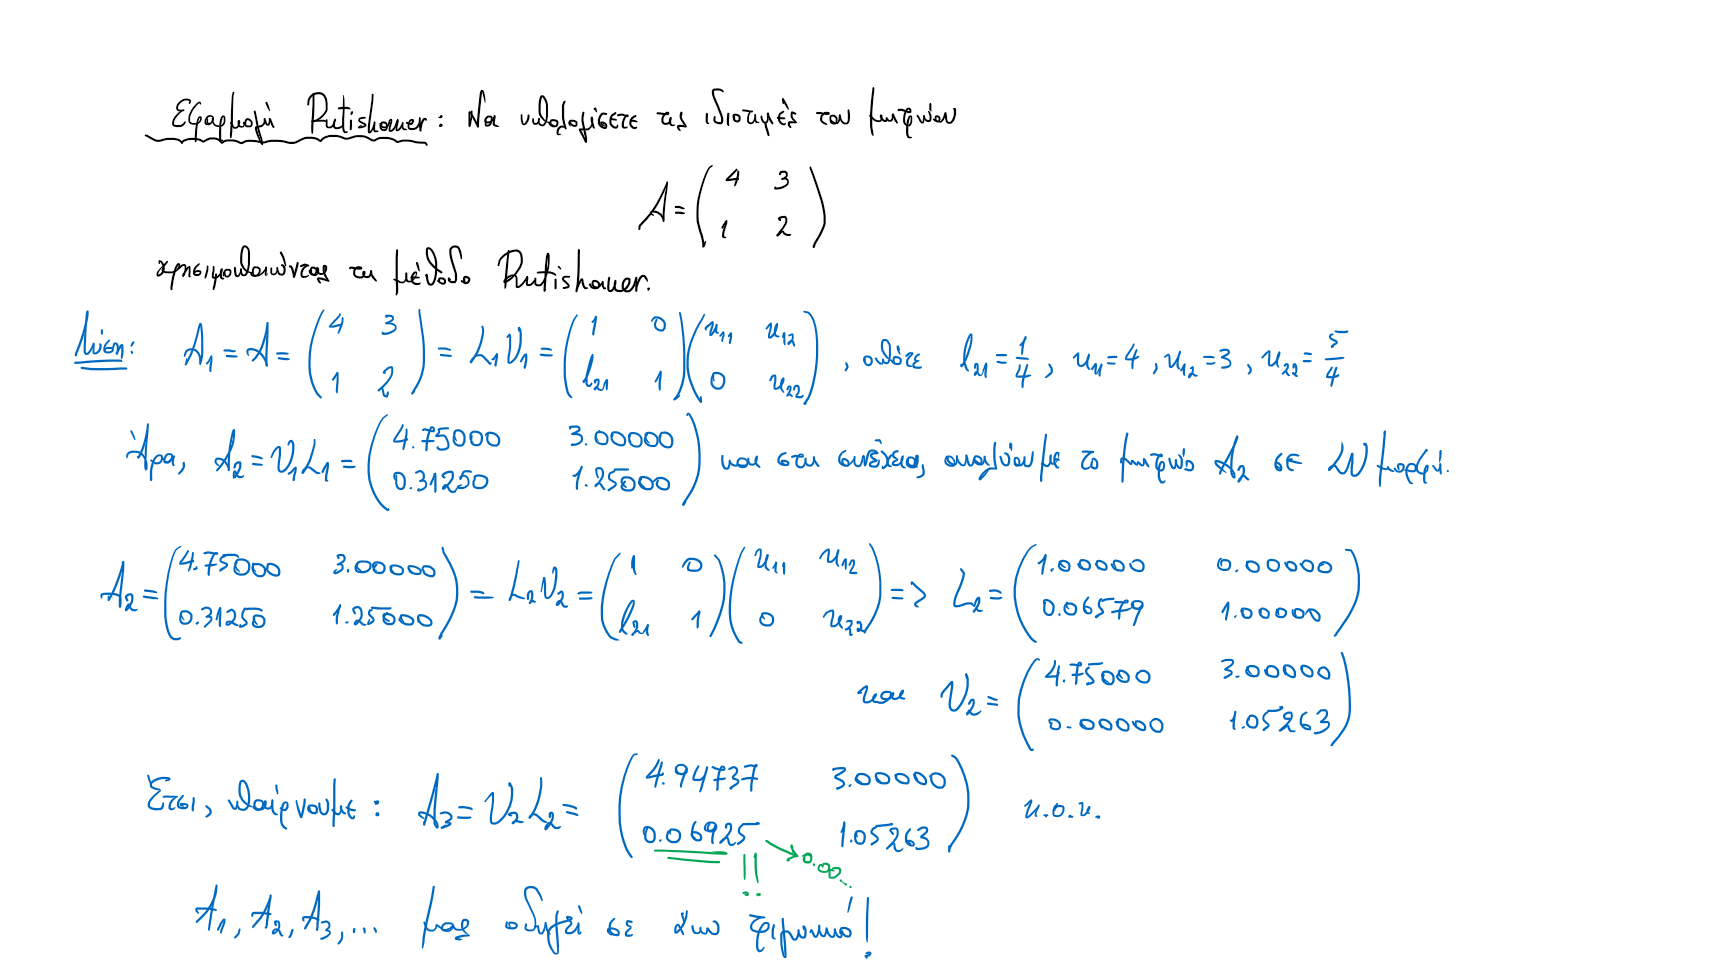 Εφαρμογή Rutishauer: Να υπολογίσετε τις ιδιοτιμές του μητρώου
A = ( 4 3 ; 1 2 )
χρησιμοποιώντας τη μέθοδο Rutishauer.
Λύση: A₁ = A = ( 4 3 ; 1 2 ) = L₁U₁ = ( 1 0 ; l₂₁ 1 ) ( u₁₁ u₁₂ ; 0 u₂₂ ), οπότε l₂₁ = 1/4, u₁₁ = 4, u₁₂ = 3, u₂₂ = 5/4
Άρα, A₂ = U₁L₁ = ( 4.75000 3.00000 ; 0.31250 1.25000 ) και στη συνέχεια, αναλύουμε το μητρώο A₂ σε LU μορφή.
A₂ = ( 4.75000 3.00000 ; 0.31250 1.25000 ) = L₂U₂ = ( 1 0 ; l₂₁ 1 ) ( u₁₁ u₁₂ ; 0 u₂₂ ) => L₂ = ( 1.00000 0.00000 ; 0.06579 1.00000 )
και U₂ = ( 4.75000 3.00000 ; 0.00000 1.05263 )
Έτσι, παίρνουμε: A₃ = U₂L₂ = ( 4.94737 3.00000 ; 0.06925 1.05263 ) κ.ο.κ.
!! → 0.00...
A₁, A₂, A₃, ... μας οδηγεί σε άνω τριγωνικό!